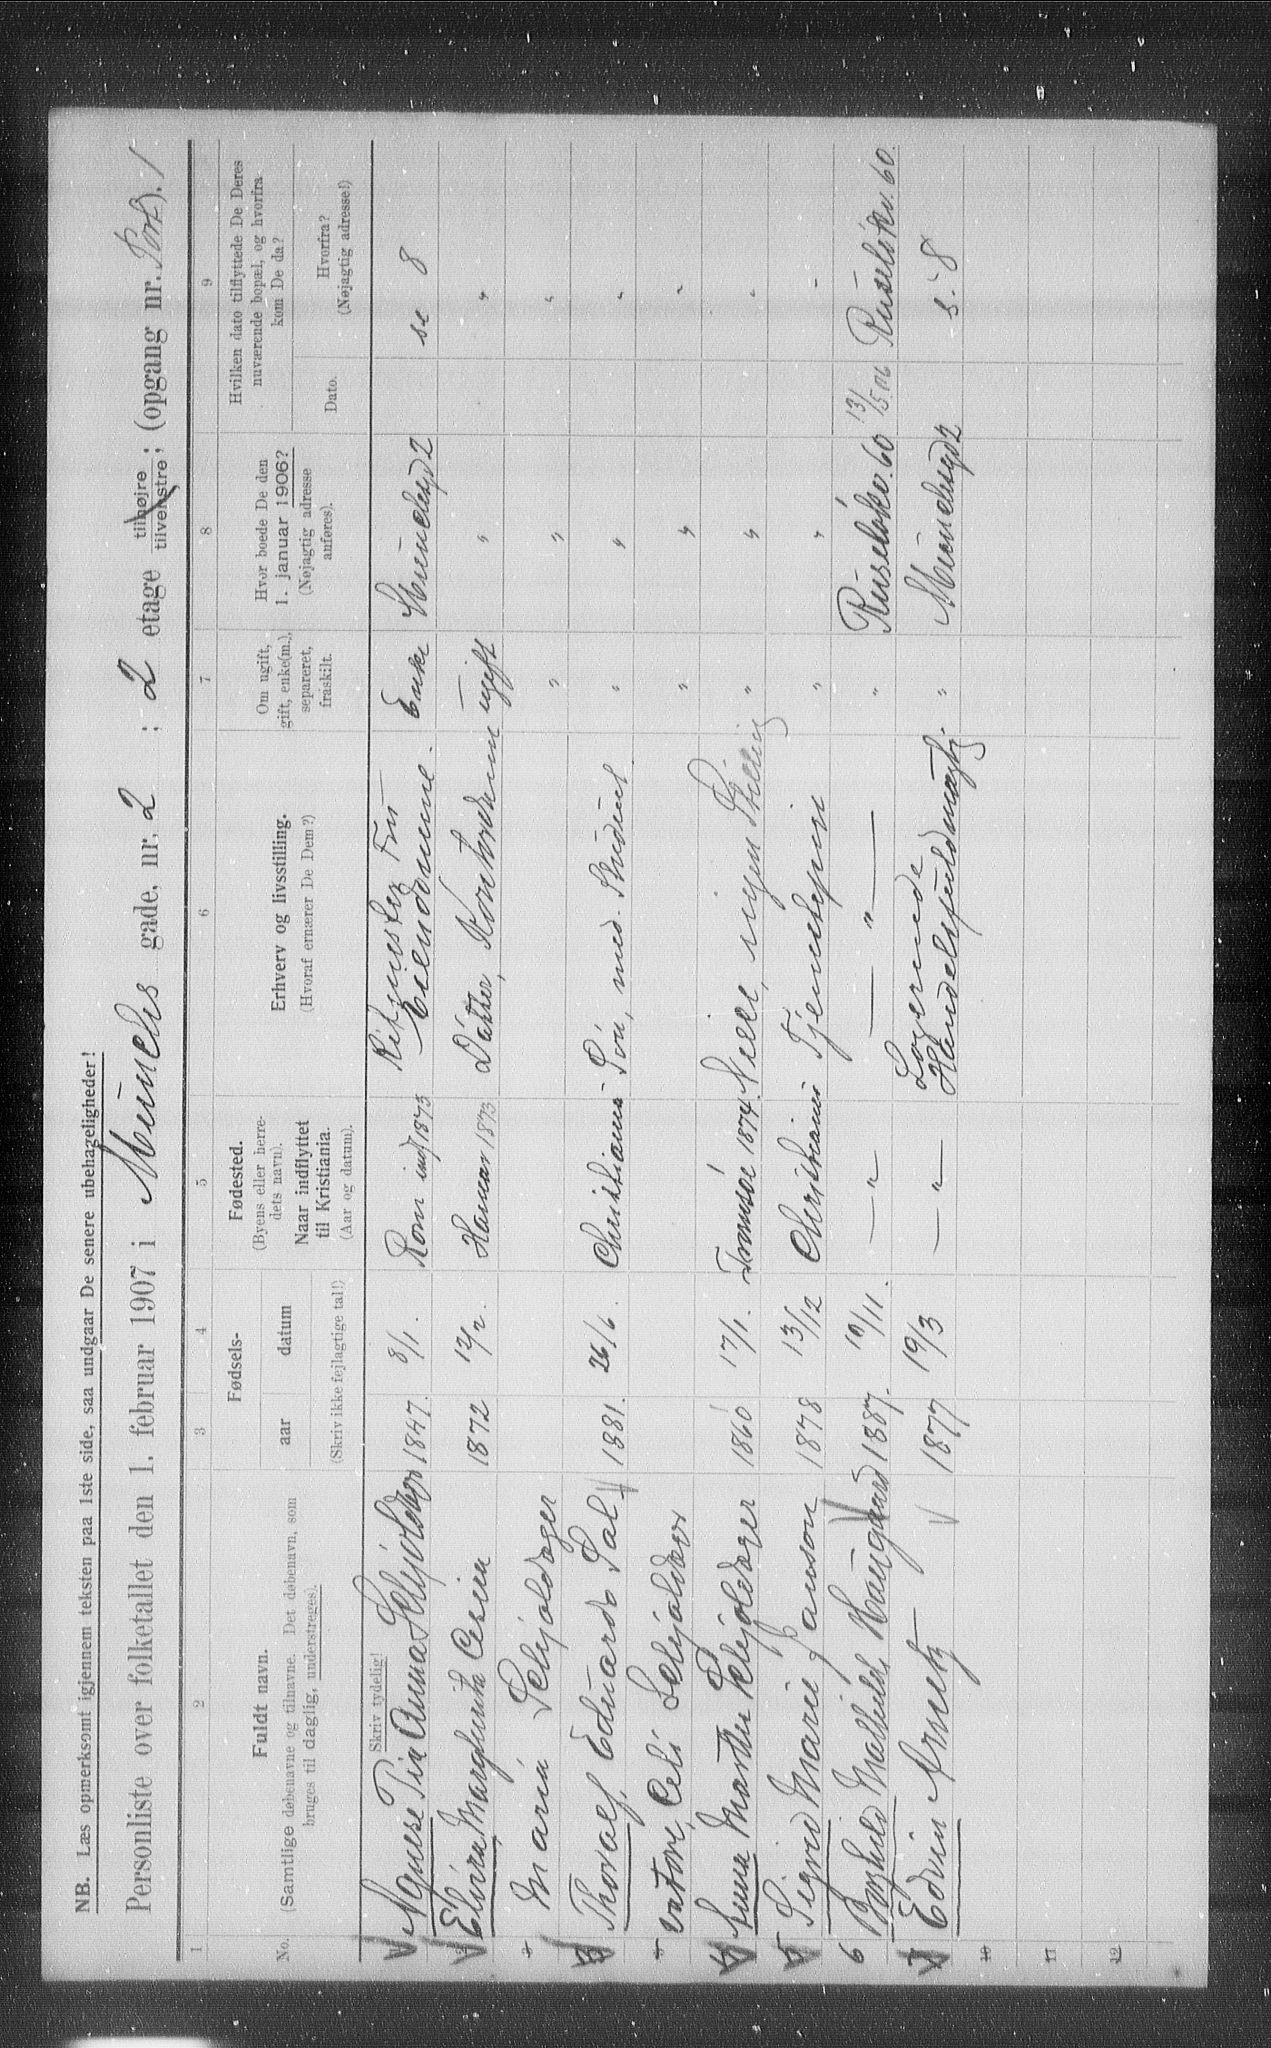 NB. Læs opmerksomt igjennem teksten paa 1ste side, saa undgaar De senere ubehageligheder!
Personliste over folketallet den 1. februar 1907 i Munchs gade, nr. 2 ; 2 etage tilhøjre tilvenstre; (opgang nr. Port). 1
1 2 3 4 5 6 7 8 9
No.
Fuldt navn.
(Samtlige døbenavne og tilnavne. Det døbenavn, som
bruges til daglig, understreges).
Fødsels-
aar datum
(Skriv ikke fejlagtige tal!)
Fødested.
(Byens eller herre-
dets navn).
Naar indflyttet
til Kristiania.
(Aar og datum).
Erhverv og livsstilling.
(Hvoraf ernærer De Dem?)
Om ugift,
gift, enke(m.),
separeret,
fraskilt.
Hvor boede De den
1. januar 1906?
(Nøjagtig adresse
anføres).
Hvilken dato tilflyttede De Deres
nuværende bopæl, og hvorfra
kom De da?
Dato.
Hvorfra?
(Nøjagtig adresse!)
Skriv tydelig!
Agnese Pia Anna Schjoldager 1847. 8/1. Rom indf 1873 Ritmester Frú Eiendomme. Enke Munchsgd 2 se 8
Elvira Margherita Cesira 1872 12/2. Hamar 1873 Datter, Kontordame ugift " "
Maria Schjoldager " " "
Thoralf, Eduardo Sal 1881. 26/6. Christiania Søn, med. Student " " "
vatore, Celi Schjoldager " " "
Anna Marthe Schjoldager 1860 17/1. Tromsøe 1874. Niece, ingen Stilling " " "
5 Sigrid Marie Janson 1878 13/12 Christiania Tjenestepige " " "
6 Borghild Mathilde Haugaard 1887. 10/11. — " — — " — " Ruseløkv. 60 13/5 06 Ruseløkv. 60.
7 Edvin Arntz 1877 19/3 — " — Logerende Handelsfuldmægtig. " Munchsgd 2 s. 8
10
11
12